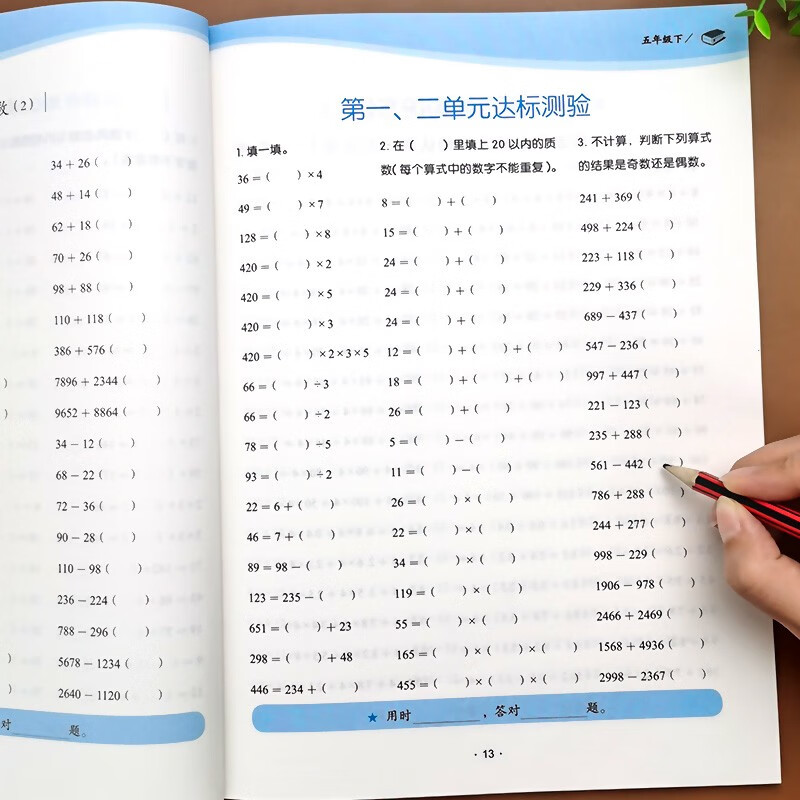 数(2)
34+26( )
48+14( )
62+18( )
70+26( )
98+88( )
110+118( )
386+576( )
) 7896+2344( )
) 9652+8864( )
34-12( )
68-22( )
72-36( )
90-28( )
110-98( )
236-224( )
788-296( )
) 5678-1234( )
) 2640-1120( )
对________题。
五年级下/
第一、二单元达标测验
1. 填一填。
36=( )×4
49=( )×7
128=( )×8
420=( )×2
420=( )×5
420=( )×3
420=( )×2×3×5
66=( )÷3
66=( )÷2
78=( )÷5
93=( )÷2
22=6+( )
46=7+( )
89=98-( )
123=235-( )
651=( )+23
298=( )+48
446=234+( )
2. 在( )里填上20以内的质
数(每个算式中的数字不能重复)。
8=( )+( )
15=( )+( )
24=( )+( )
24=( )+( )
24=( )+( )
12=( )+( )+( )
18=( )+( )+( )
26=( )+( )
5=( )-( )
11=( )-( )
26=( )×( )
22=( )×( )
34=( )×( )
119=( )×( )
55=( )×( )
165=( )×( )×( )
455=( )×( )×( )
3. 不计算，判断下列算式
的结果是奇数还是偶数。
241+369( )
498+224( )
223+118( )
229+336( )
689-437( )
547-236( )
997+447( )
221-123( )
235+288( )
561-442(
786+288( )
244+277( )
998-229( )
1906-978( )
2466+2469( )
1568+4936( )
2998-2367( )
★ 用时________，答对________题。
·13·